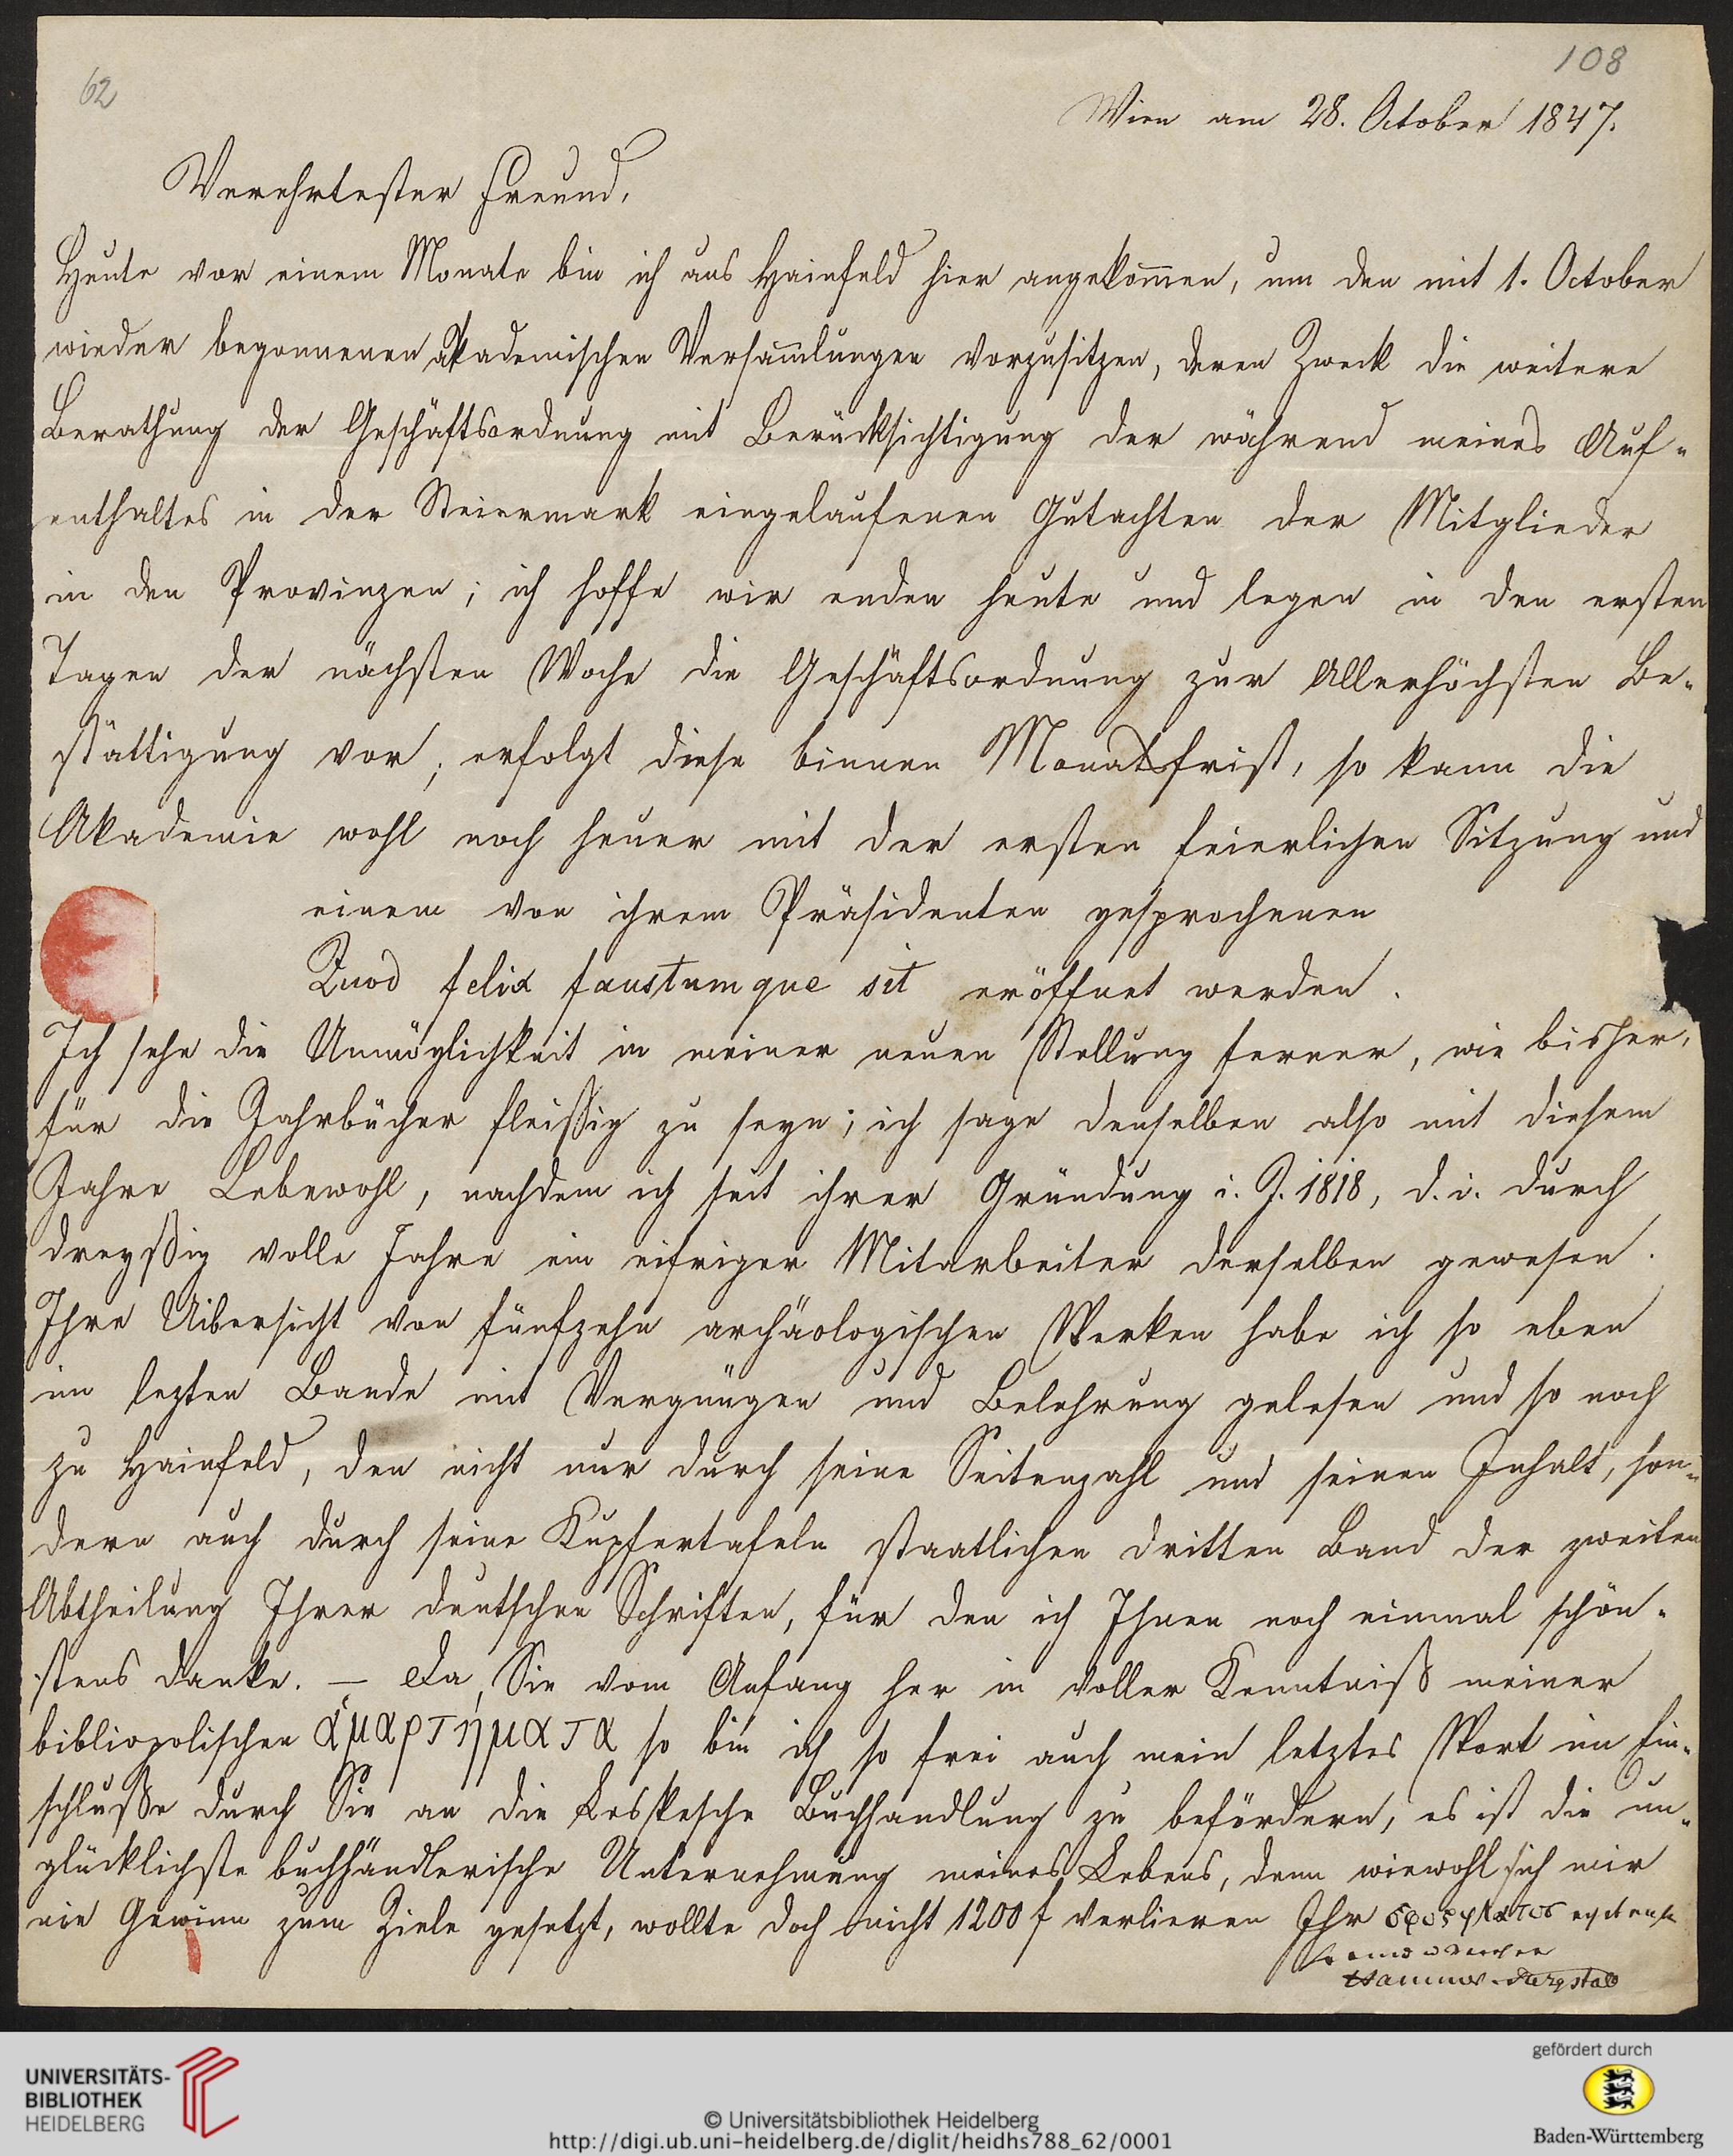 108
62
Wien am 28. October 1847.
Verehrtester Freund,
Heute vor einem Monate bin ich aus Hainfeld hier angekom̄en, um den mit 1. October
wieder begonnenen akademischen Versam̄lungen vorzusitzen, deren Zweck die weitere
Berathung der Geschäftsordnung mit Berücksichtigung der während meines Auf-
enthaltes in der Steiermark eingelaufenen Gutachten der Mitglieder
in den Provinzen; ich hoffe wir enden heute und legen in den ersten
Tagen der nächsten Woche die Geschäftsordnung zur Allerhöchsten Be-
stättigung vor; erfolgt diese binnen Monatsfrist, so kann die
Akademie wohl noch heuer mit der ersten feierlichen Sitzung und
einem von ihrem Präsidenten gesprochenen
Quod felix faustumque sit eröffnet werden.
Ich sehe die Unmöglichkeit in meiner neuen Stellung ferner, wie bisher,
für die Jahrbücher fleißig zu seyn; ich sage denselben also mit diesem
Jahre Lebewohl, nachdem ich seit ihrer Gründung i. J. 1818, d. i. durch
dreyßig volle Jahre ein eifriger Mitarbeiter derselben gewesen.
Ihre Uibersicht von fünfzehn archäologischen Werken habe ich so eben
im lezten Bande mit Vergnügen und Belehrung gelesen und so noch
zu Hainfeld, den nicht nur durch seine Seitenzahl und seinen Inhalt, son-
dern auch durch seine Kupfertafeln staatlichen dritten Band der zweiten
Abtheilung Ihrer deutschen Schriften, für den ich Ihnen noch einmal schön-
stens danke. — Da Sie vom Anfang her in voller Kenntniß meiner
bibliopolischen ἁμαρτηματα so bin ich so frei auch mein letztes Wort im Ein-
schluße durch Sie an die Leskesche Buchhandlung zu befördern, es ist die un-
glücklichste buchhändlerische Unternehmung meines Lebens, denn wiewohl ich mir
nie Gewinn zum Ziele gesetzt, wollte doch nicht 1200 f verlieren Ihr
Hammer-Purgstall
UNIVERSITÄTS-
BIBLIOTHEK
HEIDELBERG
© Universitätsbibliothek Heidelberg
http://digi.ub.uni-heidelberg.de/diglit/heidhs788_62/0001
gefördert durch
Baden-Württemberg